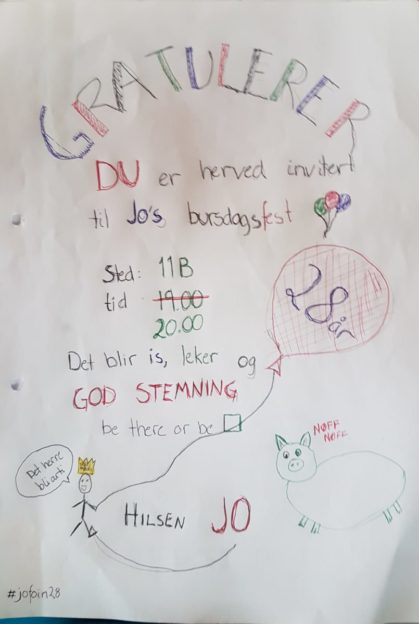 GRATULERER
DU er herved invitert
til Jo's bursdagsfest
Sted: 11B
tid 19.00
20.00
28 år
Det blir is, leker og
GOD STEMNING
be there or be
NØFF
NØFF
Det herre
bli arti
HILSEN JO
#jofoin28